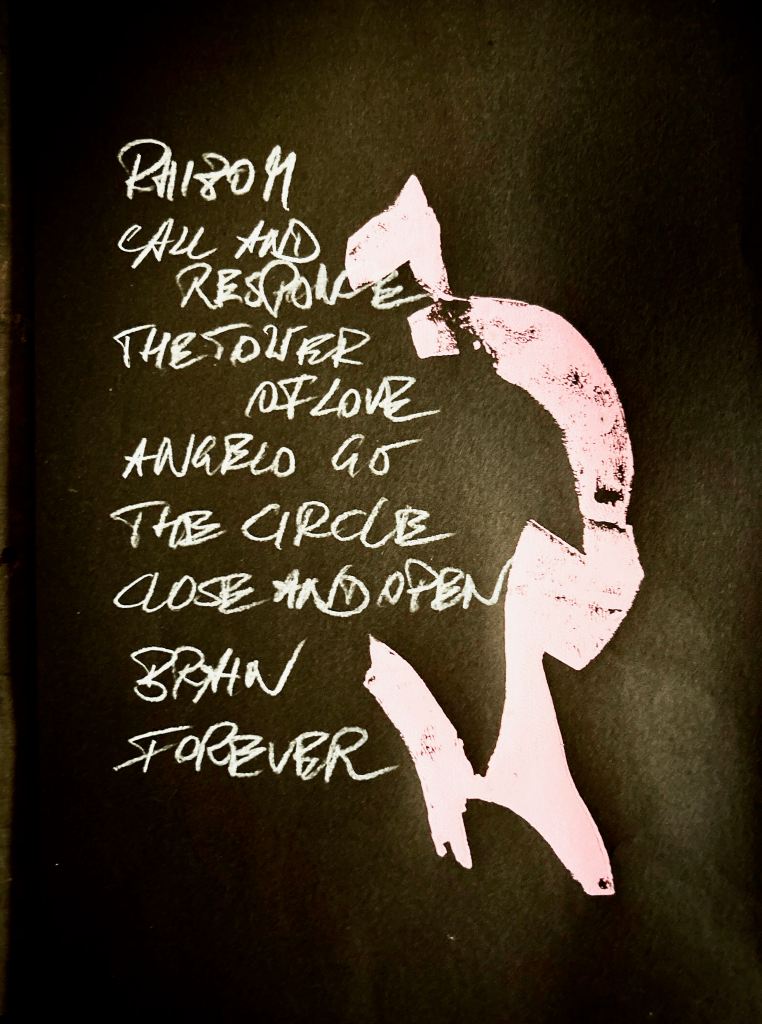 RHIZOM
CALL AND
RESPONSE
THE TOWER
OF LOVE
ANGELO GO
THE CIRCLE
CLOSE AND OPEN
BRAHN
FOREVER